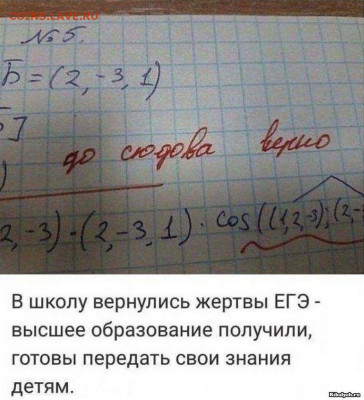 COINS.LAVE.RU
№5.
Б=(2,-3,1)
Б]
)
до сюдова верно
2,-3)-(2,-3,1)·cos((1,2,-3);(2,-
В школу вернулись жертвы ЕГЭ -
высшее образование получили,
готовы передать свои знания
детям.